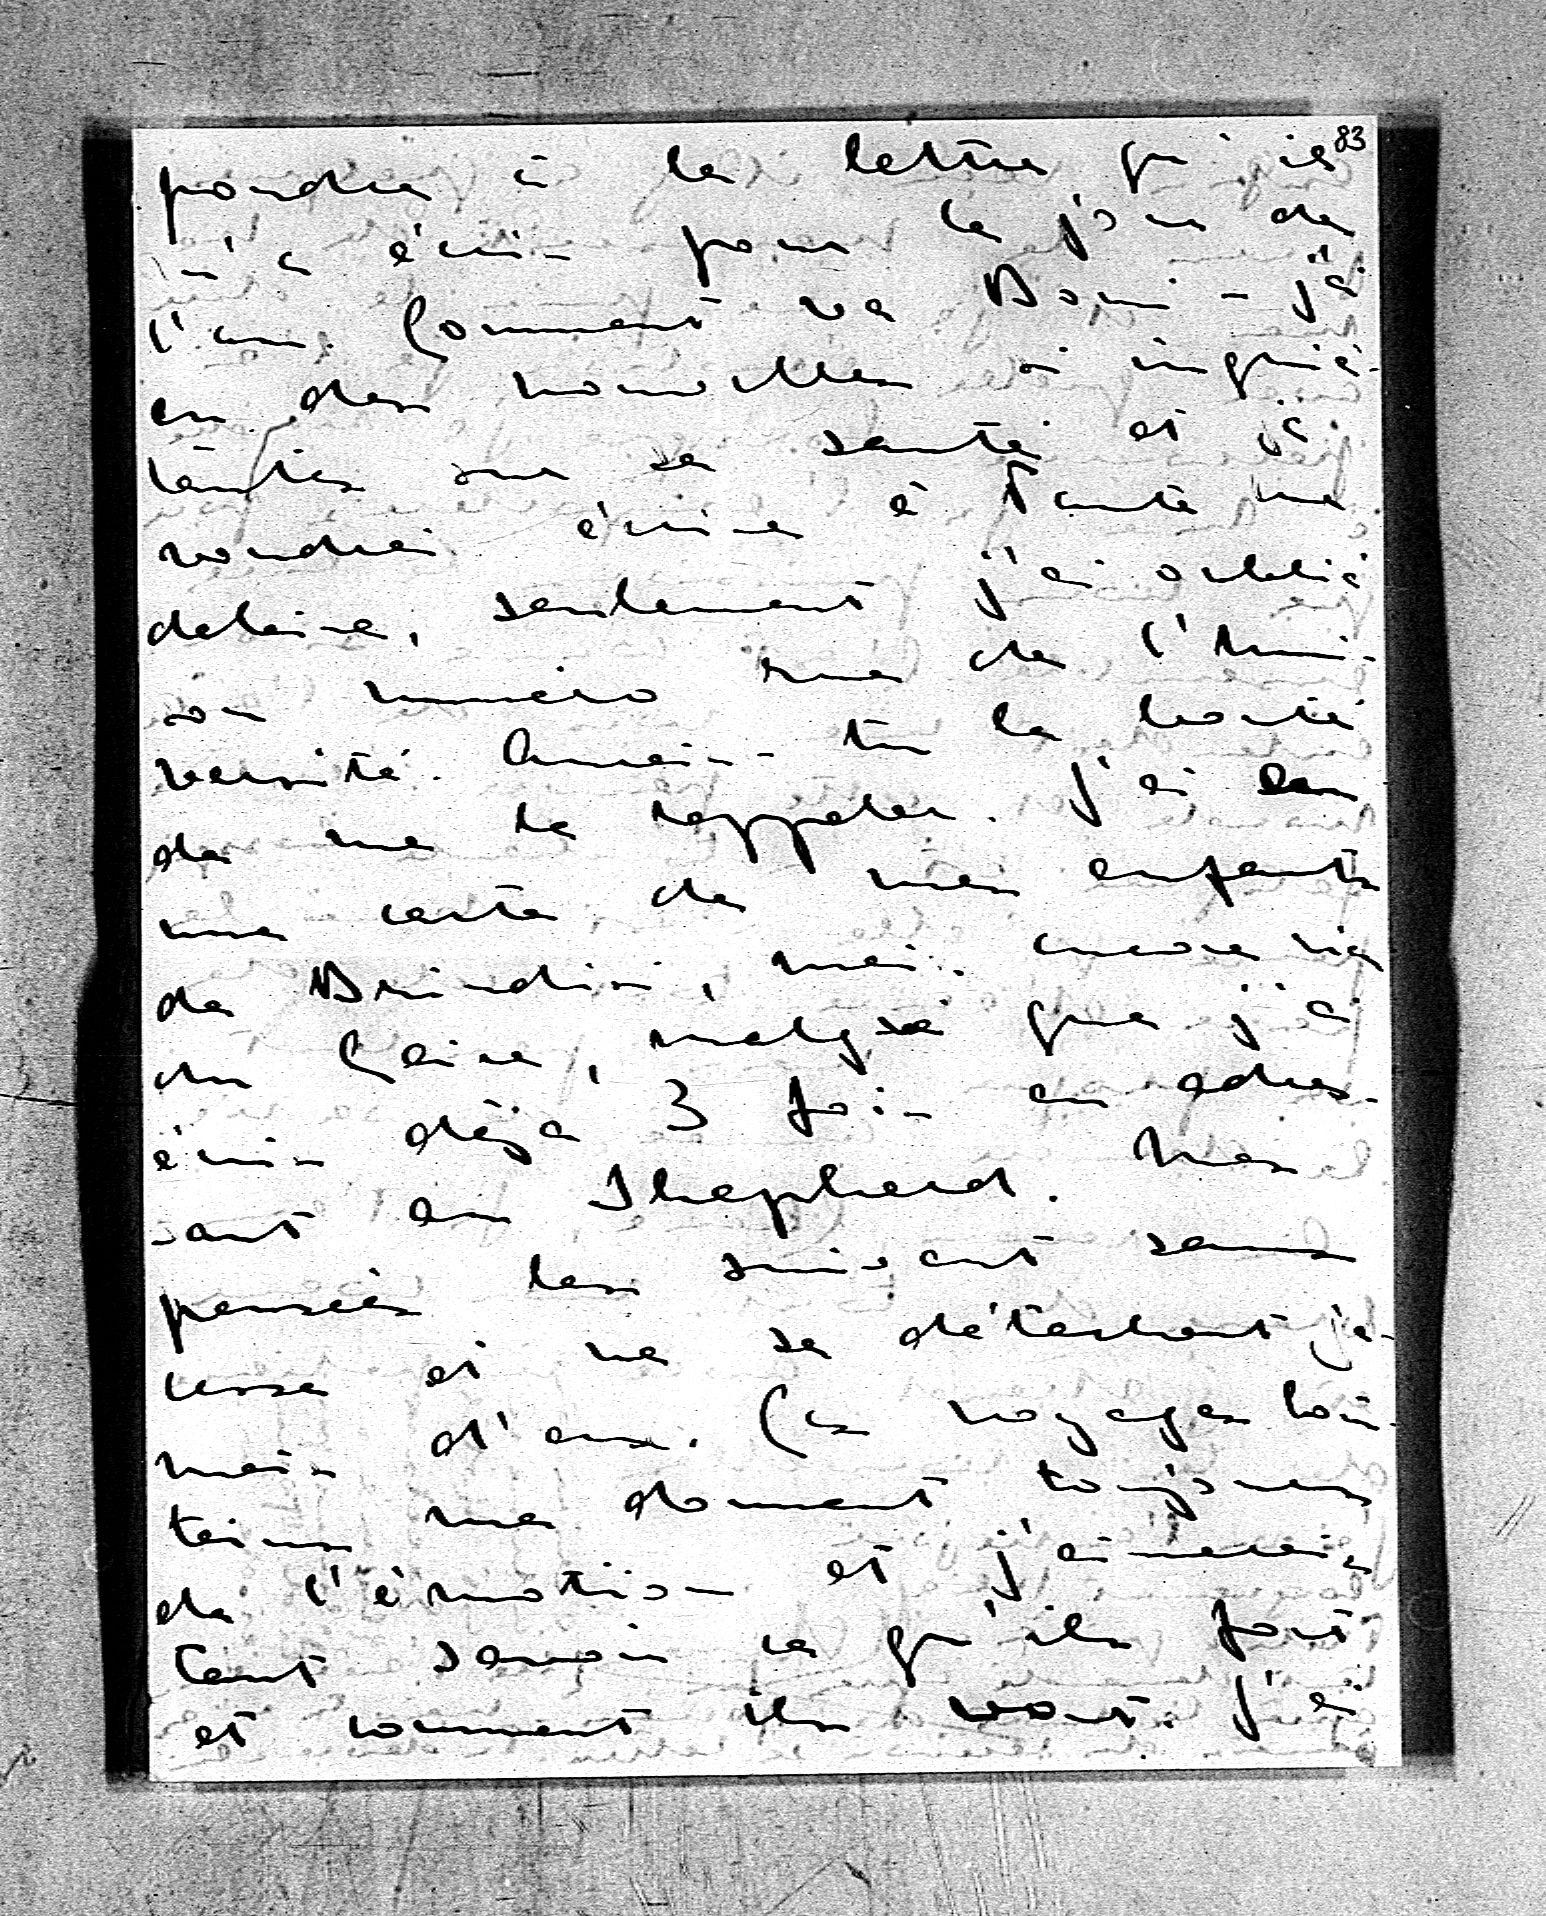 83
pondre à la lettre qu'il
m'a écrit pour le jour de
l'an. Comment va Domi - j'ai
eu des nouvelles si inquié-
tantes sur sa santé et je
voudrai écrire à Tante Ma
deleine, seulement j'ai oublié
son numéro rue de l'Uni-
versité. Aurais-tu la bonté
de me le rappeler. J'ai eu
une carte de mes enfants
de Brindisi, mais encore rien
du Caire, malgré que j'ai
écris déjà 3 fois en adres-
sant au Shepherd. Mes
pensées les suivent sans
cesse et ne se détachent ja-
mais d'eux. Ces voyages loin-
tains me donnent toujours
de l'émotion et j'aimerais
tant savoir ce qu'ils font
et comment ils vont. J'ai